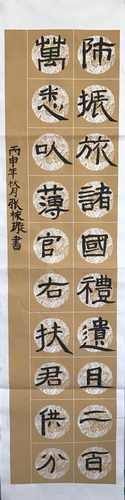 師振旅諸國禮遺且二百
萬悉以薄官右扶君供分
丙申年秋月张 書